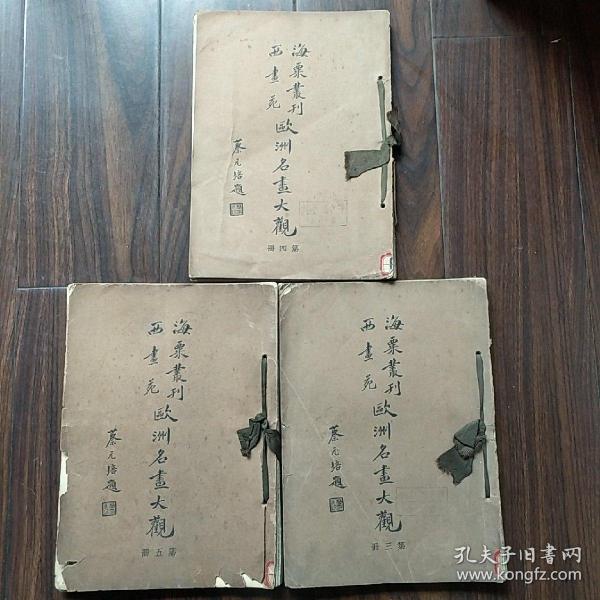 海粟叢刊
西畫苑
歐洲名畫大觀
蔡元培題
第四冊
海粟叢刊
西畫苑
歐洲名畫大觀
蔡元培題
第五冊
海粟叢刊
西畫苑
歐洲名畫大觀
蔡元培題
第三冊
孔夫子旧书网
www.kongfz.com